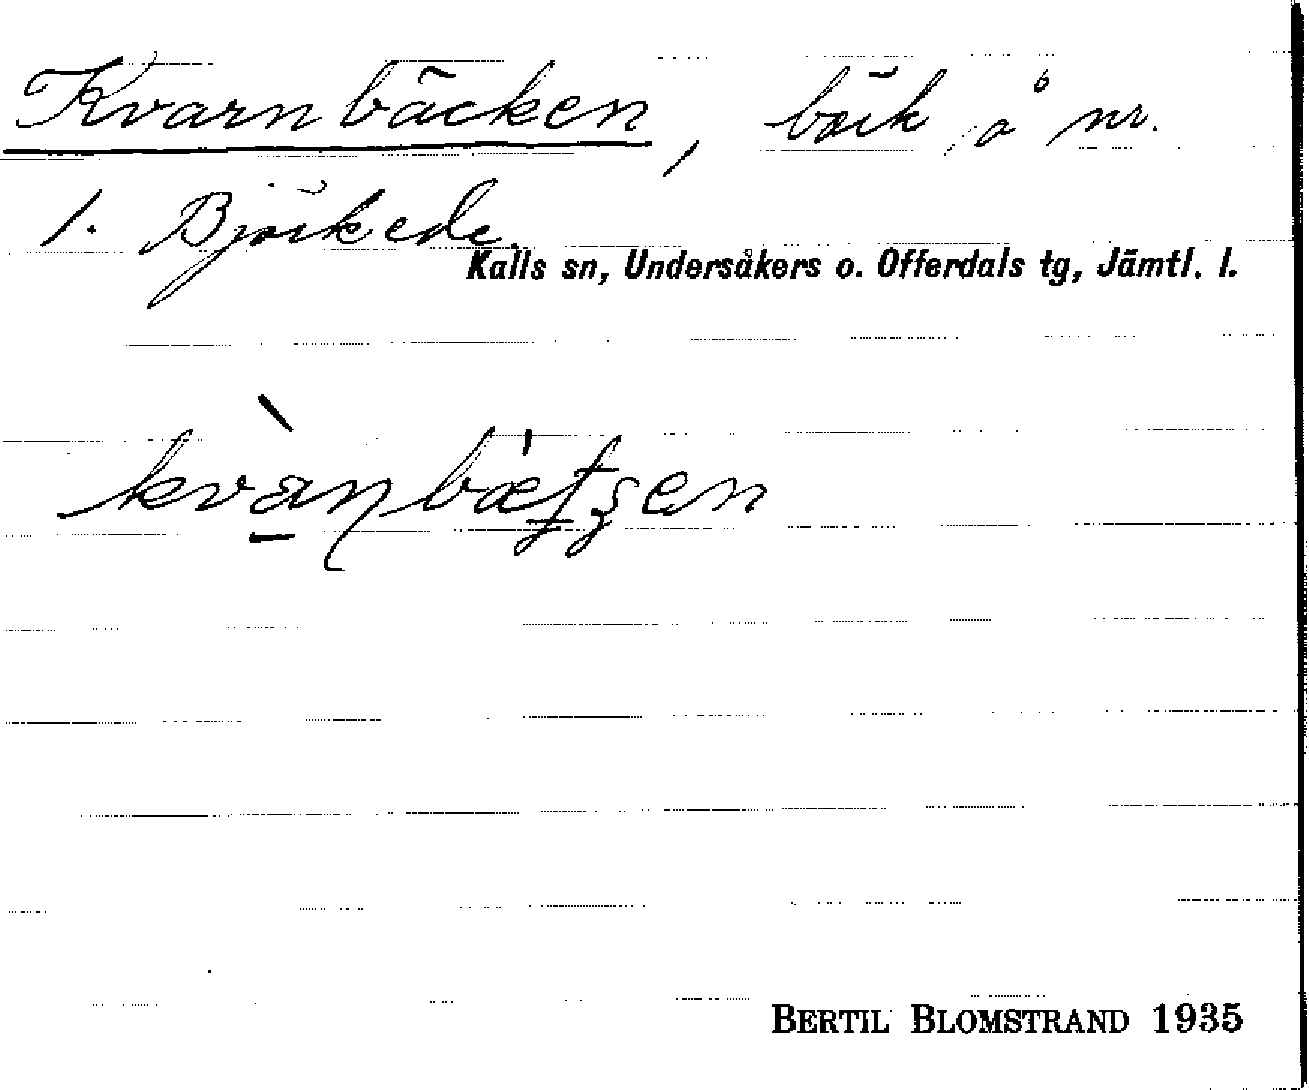 Kvarnbäcken, bäck å nr.
1. Björkede.
Kalls sn, Undersåkers o. Offerdals tg, Jämtl. l.
BERTIL BLOMSTRAND 1935